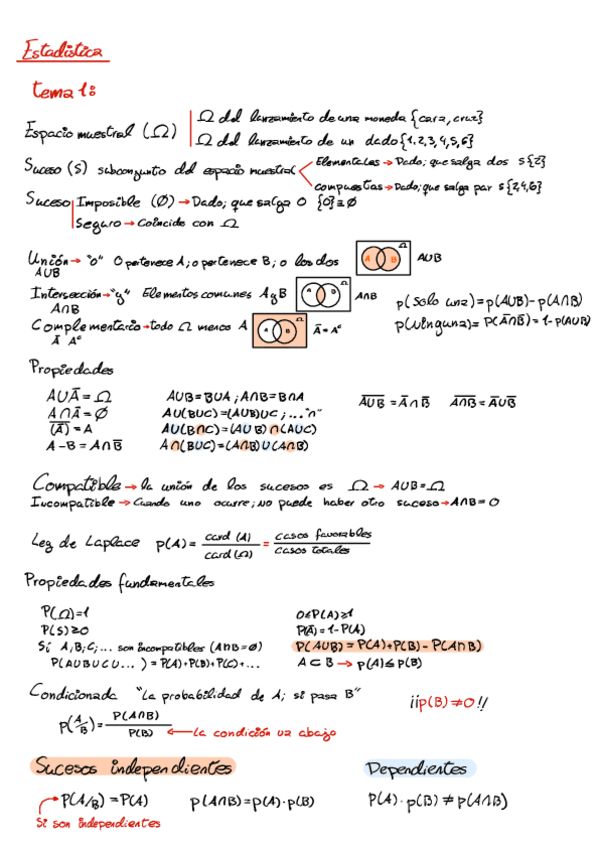 Estadística
tema 1:
Espacio muestral (Ω)
Ω del lanzamiento de una moneda {cara, cruz}
Ω del lanzamiento de un dado {1,2,3,4,5,6}
Suceso (S) subconjunto del espacio muestral
Elementales → Dado; que salga dos S{2}
compuestas → Dado; que salga par S{2,4,6}
Suceso
Imposible (Ø) → Dado; que salga 0 {0} ≡ Ø
Seguro → Coincide con Ω
Unión → "o" O pertenece A; o pertenece B; o los dos
A∪B
A B Ω
A∪B
Intersección → "y" Elementos comunes A y B
A∩B
A B Ω
A∩B
p(solo una) = p(A∪B) - p(A∩B)
Complementario → todo Ω menos A
Ā Aᶜ
A B Ω
Ā = Aᶜ
p(Ninguna) = P(Ā∩B̅) = 1 - p(A∪B)
Propiedades
A∪Ā = Ω
A∩Ā = Ø
(Ā)̅ = A
A - B = A∩B̅
A∪B = B∪A ; A∩B = B∩A
A∪(B∪C) = (A∪B)∪C ; ... "∩"
A∪(B∩C) = (A∪B)∩(A∪C)
A∩(B∪C) = (A∩B)∪(A∩B)
A̅∪̅B̅ = Ā∩B̅
A̅∩̅B̅ = Ā∪B̅
Compatible → la unión de los sucesos es Ω → A∪B = Ω
Incompatible → Cuando uno ocurre; No puede haber otro suceso → A∩B = 0
Ley de Laplace p(A) = card (A) / card (Ω) = casos favorables / casos totales
Propiedades fundamentales
P(Ω) = 1
P(S) ≥ 0
Si A, B, C, ... son incompatibles (A∩B = Ø)
P(A∪B∪C∪...) = P(A) + P(B) + P(C) + ...
0 ≤ P(A) ≥ 1
P(Ā) = 1 - P(A)
P(A∪B) = P(A) + P(B) - P(A∩B)
A ⊂ B → p(A) ≤ p(B)
Condicionada "La probabilidad de A; si pasa B"
¡¡p(B) ≠ 0!!
P(A/B) = P(A∩B) / P(B) ← La condición va abajo
Sucesos independientes
P(A/B) = P(A)
p(A∩B) = p(A)·p(B)
Si son independientes
Dependientes
P(A)·p(B) ≠ p(A∩B)